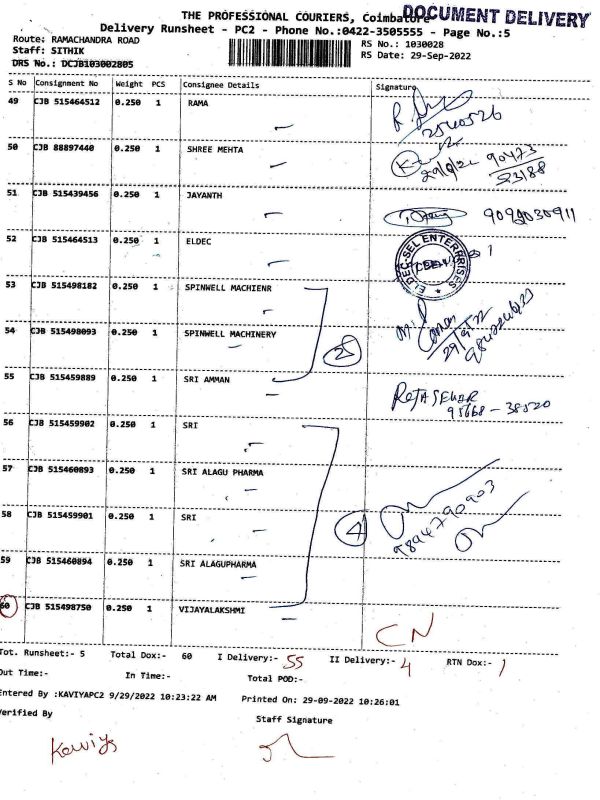 THE PROFESSIONAL COURIERS, Coimbatore
DOCUMENT DELIVERY
Delivery Runsheet - PC2 - Phone No.:0422-3505555 - Page No.:5
Route: RAMACHANDRA ROAD
RS No.: 1030028
Staff: SITHIK
RS Date: 29-Sep-2022
DRS No.: DCJB103002805
S No Consignment No Weight PCS Consignee Details Signature
49 CJB 515464512 0.250 1 RAMA
2540526
50 CJB 88897440 0.250 1 SHREE MEHTA
90473
53188
51 CJB 515439456 0.250 1 JAYANTH
9092030911
52 CJB 515464513 0.250 1 ELDEC
ELDEC-SEL ENTERPRISES
53 CJB 515498182 0.250 1 SPINWELL MACHIENR
54 CJB 515498093 0.250 1 SPINWELL MACHINERY
2
29/9/22
55 CJB 515459889 0.250 1 SRI AMMAN
95668-38520
56 CJB 515459902 0.250 1 SRI
57 CJB 515460893 0.250 1 SRI ALAGU PHARMA
58 CJB 515459901 0.250 1 SRI
4
9894790903
59 CJB 515460894 0.250 1 SRI ALAGUPHARMA
60 CJB 515498750 0.250 1 VIJAYALAKSHMI
CN
Tot. Runsheet:- 5 Total Dox:- 60 I Delivery:- 55 II Delivery:- 4 RTN Dox:- 1
Out Time:- In Time:- Total POD:-
Entered By :KAVIYAPC2 9/29/2022 10:23:22 AM Printed On: 29-09-2022 10:26:01
Verified By Staff Signature
Kaviya